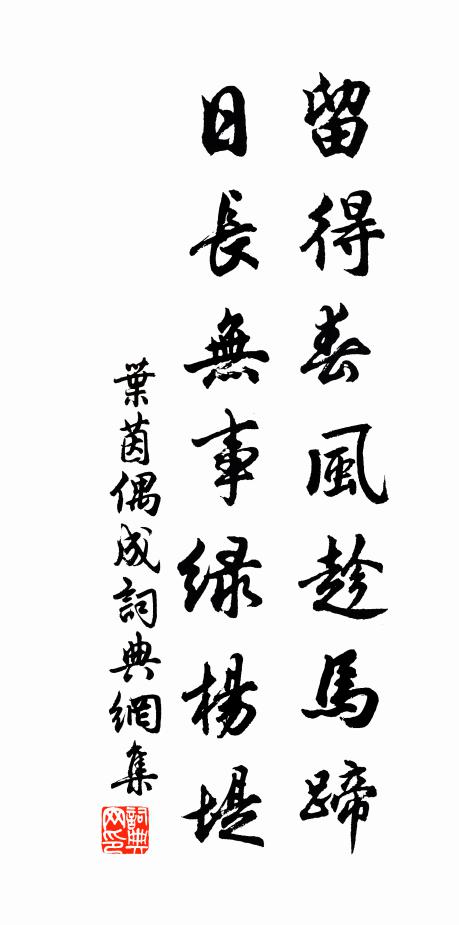 留得春風趁馬蹄
日長無事綠楊堤
葉茵偶成詞典網集
詞典网印